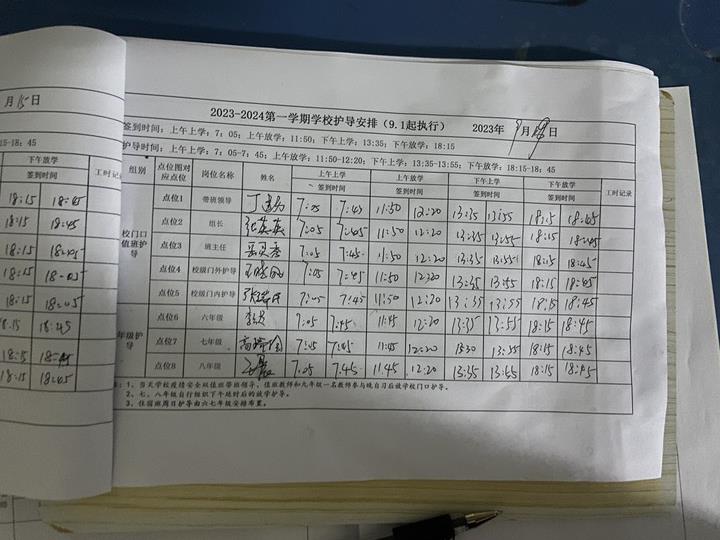 月15日
15-18：45
下午放学
工时记录
18:15 18:45
18:15 18:45
18:15 18:45
18:15 18:45
18:15 18:45
18:15 18:45
18:15 18:45
18:15 18:45
2023-2024第一学期学校护导安排（9.1起执行） 2023年9月 日
签到时间：上午上学：7：05；上午放学：11:50；下午上学：13:35；下午放学：18:15
护导时间：上午上学：7:05-7：45；上午放学：11:50-12:20；下午上学：13:35-13:55；下午放学：18:15-18：45
组别 点位图对应点位 岗位名称 姓名 上午上学 上午放学 下午上学 下午放学 工时记录
签到时间 签到时间 签到时间 签到时间
校门口值班护导
点位1 带班领导 7:05 7:45 11:50 12:20 13:35 13:55 18:15 18:45
点位2 组长 7:05 7:45 11:50 12:20 13:35 13:55 18:15 18:45
点位3 班主任 7:05 7:45 11:50 12:20 13:35 13:55 18:15 18:45
点位4 校级门外护导 7:05 7:45 11:50 12:20 13:35 13:55 18:15 18:45
点位5 校级门内护导 7:05 7:45 11:50 12:20 13:35 13:55 18:15 18:45
年级护导
点位6 六年级 7:05 7:45 11:45 12:20 13:35 13:55 18:15 18:45
点位7 七年级 7:05 7:45 11:45 12:20 13:55 18:15 18:45
点位8 八年级 7:05 7:45 11:45 12:20 13:35 13:55 18:15 18:45
1、当天学校疫情安全双值班带班领导、值班教师和九年级一名教师参与晚自习后放学校门口护导。
2、七、八年级自行组织下午延时后的放学护导。
3、住宿班周日护导由六七年级安排布置。